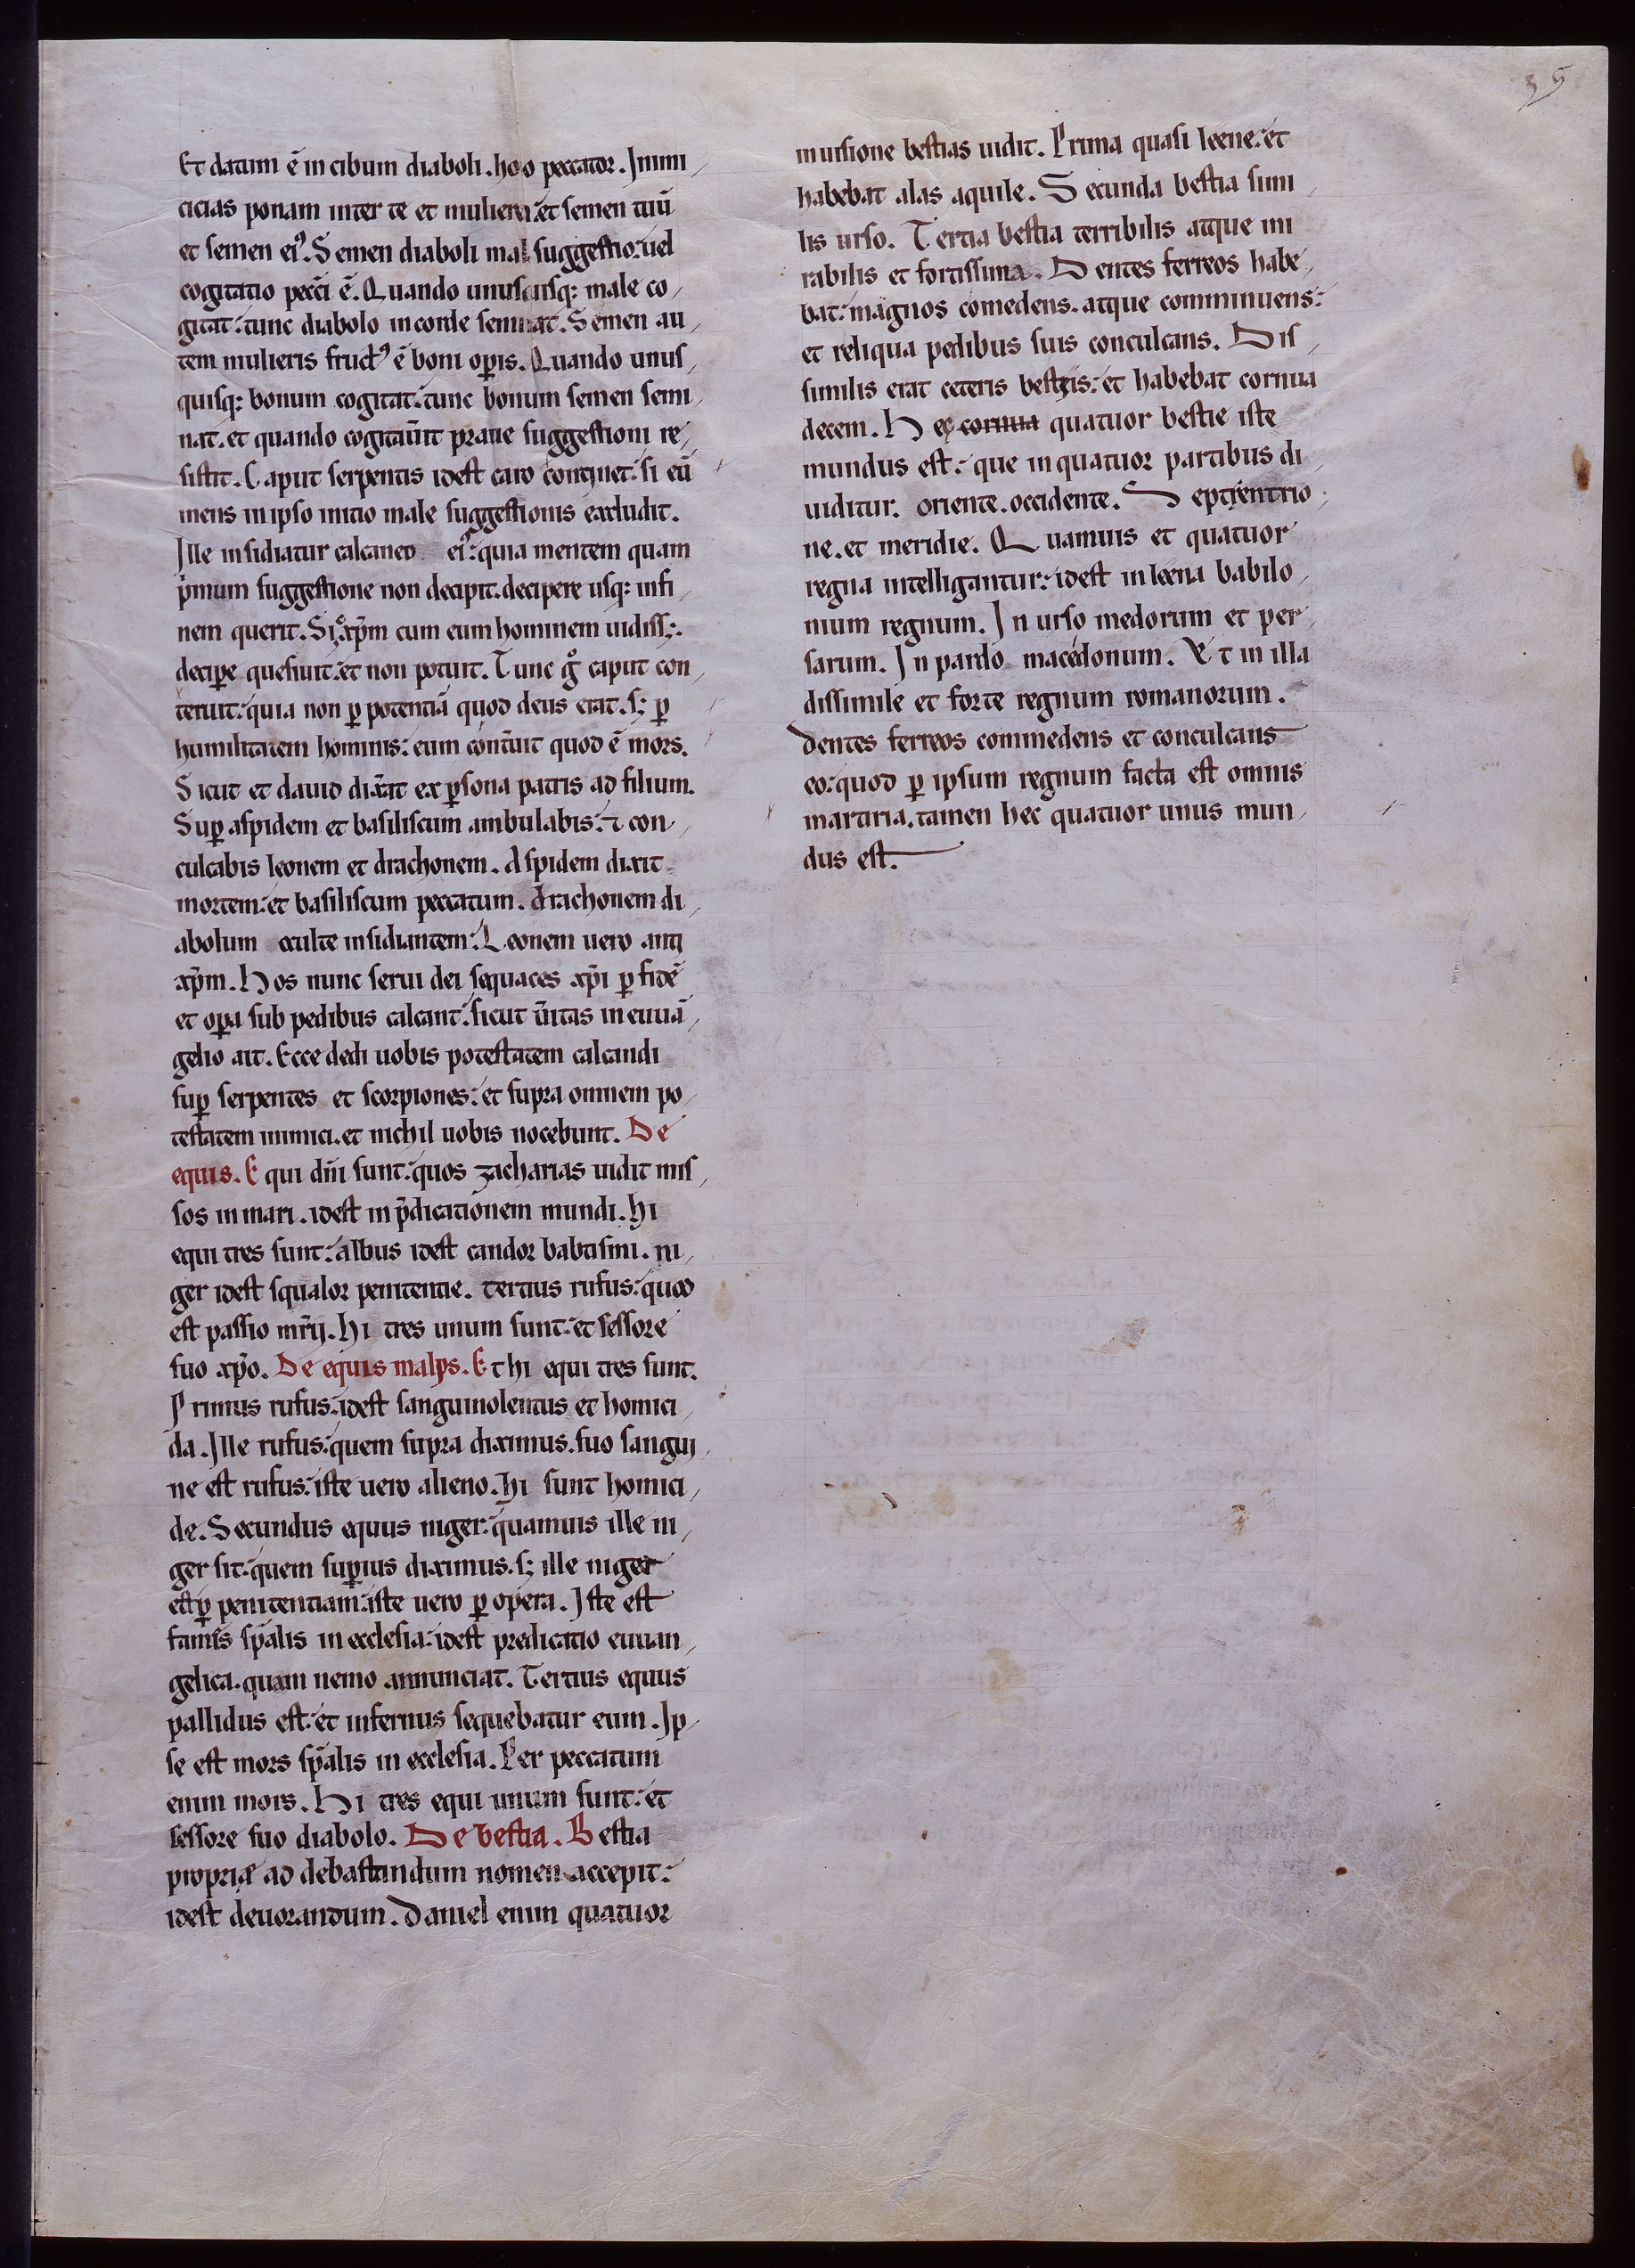 35
Et datum ē in cibum diaboli. ho o peccator. Inimi
cicias ponam inter te et mulierem et semen tuū
et semen eiꝰ. Semen diaboli mal suggestio: uel
cogitatio pecc̄i ē. Quando unusquisq; male co
gitat: tunc diabolo in corde seminat. Semen au
tem mulieris fructꝰ ē boni op̄is. Quando unus
quisq; bonum cogitat: tunc bonum semen semi
nat. et quando cogitauīt praue suggestioni re
sistit. Caput serpentis idest caro conteret: si eū
mens in ipso initio male suggestionis excludit.
Ille insidiatur calcaneo eiꝰ: quia mentem quam
p̄mum suggestione non decipit. decipere usq; in fi
nem querit. Sic xp̄m cum eum hominem uidiss;.
decip̄e quesiuit: et non potuit. Tunc gͦ caput con
teruit: quia non ꝑ potentiā quod deus erat. s; ꝑ
humilitatem hominis: eum cont̄uit quod ē mors.
Sicut et dauid dix̄at ex ꝑsona patris ad filium.
Suꝑ aspidem et basiliscum ambulabis: ⁊ con
culcabis leonem et drachonem. Aspidem dixit
mortem: et basiliscum peccatum. drachonem di
abolum oculte insidiantem: Leonem uero anti
xp̄m. Hos nunc serui dei sequaces xp̄i ꝑ fidē
et oꝑa sub pedibus calcant: sicut ūitas in euuā
gelio ait. Ecce dedi uobis potestatem calcandi
suꝑ serpentes et scorpiones: et supra omnem po
testatem inimici. et nichil uobis nocebunt. De
equis. Equi dn̄i sunt: quos zacharias uidit mis
sos in mari. idest in p̄dicationem mundi. hi
equi tres sunt: albus idest candor babtismi. ni
ger idest squalor penitentie. tertius rufus: quod
est passio mr̄ij. hi tres unum sunt: et sessore
suo xp̄o. De equis malys. Et hi equi tres sunt.
Primus rufus: idest sanguinolentus et homici
da. Ille rufus: quem supra diximus. suo sangui
ne est rufus: iste uero alieno. hi sunt homici
de. Secundus equus niger: quamuis ille ni
ger sit: quem suꝑius diximus. s; ille niger
est ꝑ penitentiam: iste uero ꝑ opera. Iste est
famis sp̄alis in ecclesia: idest predicatio euuan
gelica. quam nemo annunciat. Tertius equus
pallidus est: et infernus sequebatur eum. Ip
se est mors sp̄alis in ecclesia. Per peccatum
enim mors. Hi tres equi unum sunt: et
sessore suo diabolo. De bestia. Bestia
propriæ ad debastandum nomen accepit:
idest deuorandum. Daniel enim quatuor
in uisione bestias uidit. Prima quasi leene: et
habebat alas aquile. Secunda bestia simi
lis urso. Tertia bestia terribilis atque mi
rabilis et fortissima. Dentes ferreos habe
bat: magnos comedens. atque comminuens:
et reliqua pedibus suis conculcans. Dis
similis erat ceteris bestiis: et habebat cornua
decem. Hec cornua quatuor bestie iste
mundus est: que in quatuor partibus di
uiditur. oriente. occidente. Septentrio
ne. et meridie. Quamuis et quatuor
regna intelligantur: idest in leena babilo
nium regnum. In urso medorum et per
sarum. In pardo macedonum. Et in illa
dissimile et forte regnum romanorum.
dentes ferreos commedens et conculcans
eo: quod ꝑ ipsum regnum facta est omnis
martiria. tamen hec quatuor unus mun
dus est.